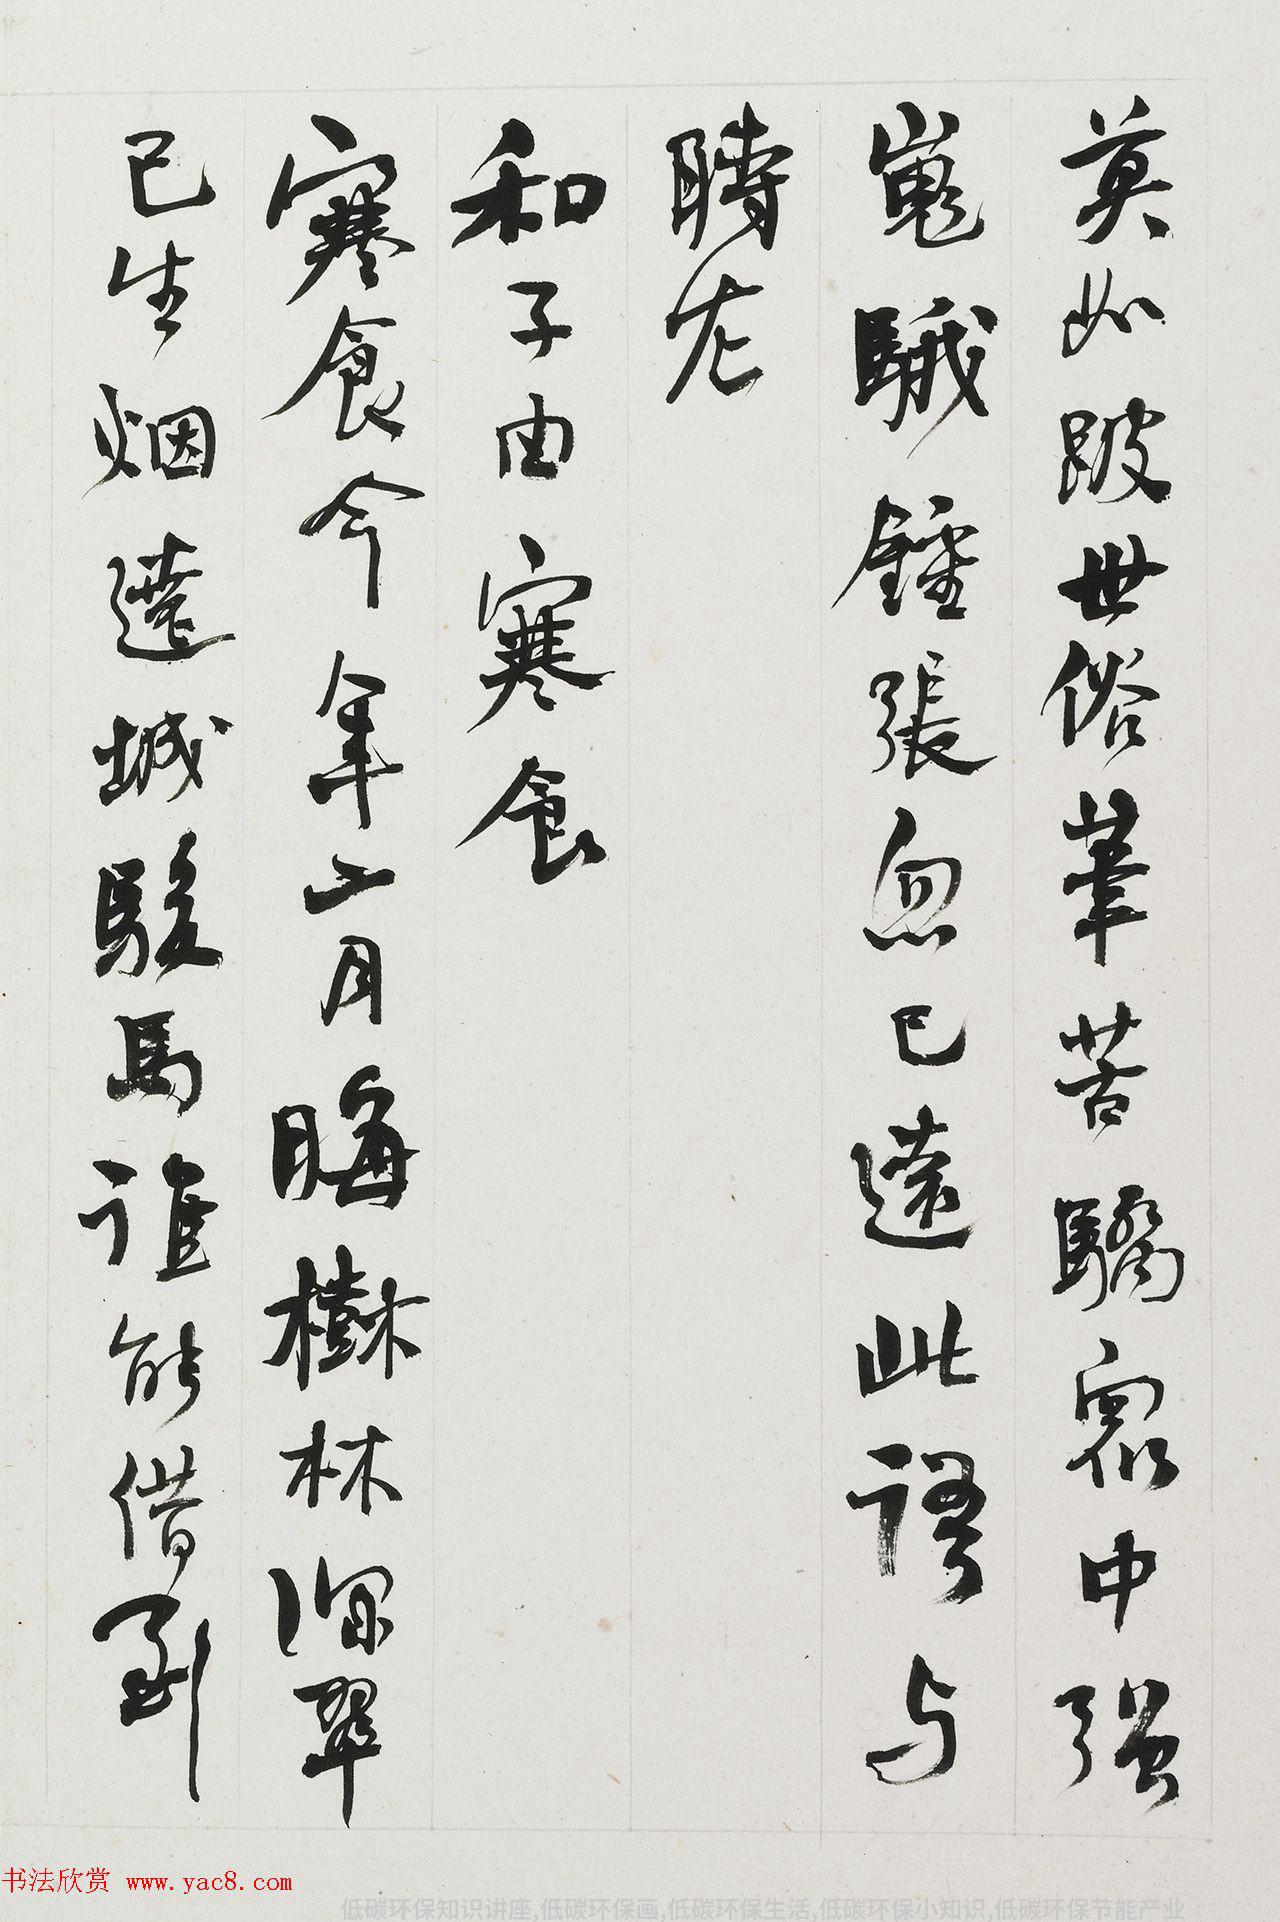 莫如跛世俗筆苦驕眾中強
嵬騀鍾張忽已遠此語与
時左
和子由寒食
寒食今年二月晦樹林深翠
已生烟遶城駿馬誰能借到
书法欣赏 www.yac8.com
低碳环保知识讲座,低碳环保画,低碳环保生活,低碳环保小知识,低碳环保节能产业